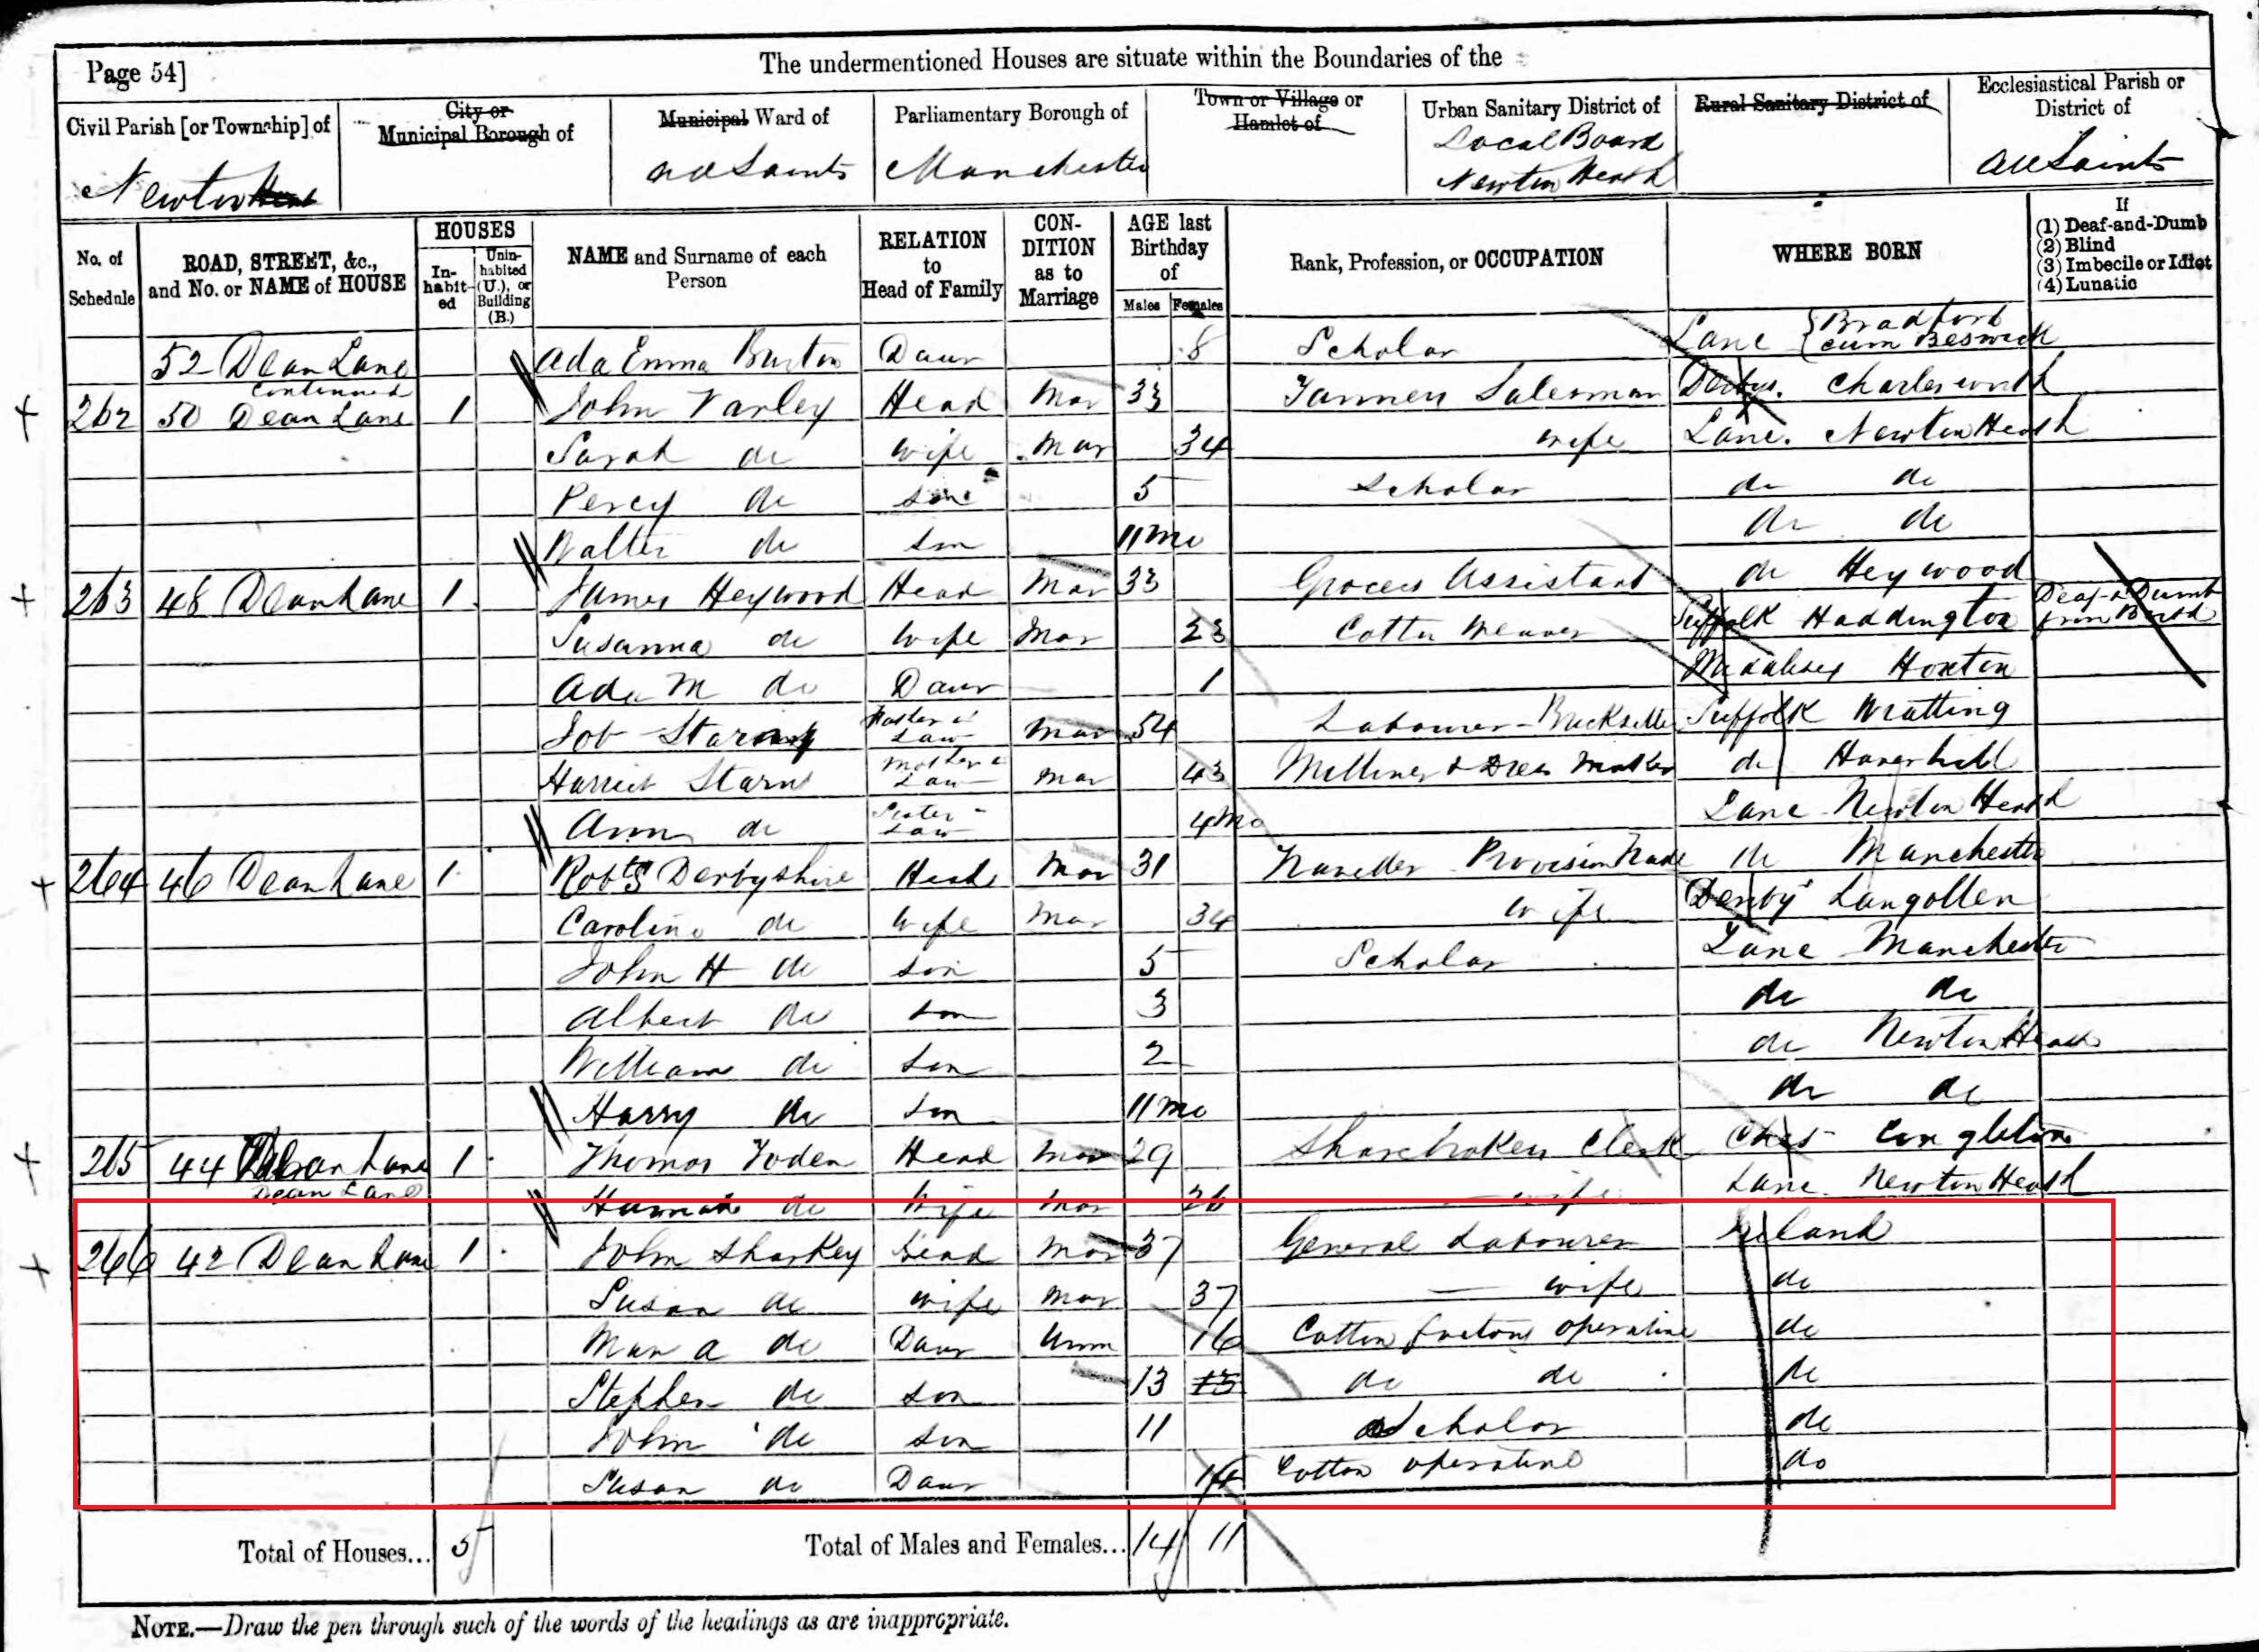 The undermentioned Houses are situate within the Boundaries of the
Page 54]
Civil Parish [or Township] of
City or Municipal Borough of
Municipal Ward of
Parliamentary Borough of
Town or Village or Hamlet of
Urban Sanitary District of
Rural Sanitary District of
Ecclesiastical Parish or District of
Newton Heath
All Saints
Manchester
Local Board Newton Heath
All Saints
No. of Schedule
ROAD, STREET, &c., and No. or NAME of HOUSE
HOUSES
In-habit-ed
Unin-habited (U.), or Building (B.)
NAME and Surname of each Person
RELATION to Head of Family
CON-DITION as to Marriage
AGE last Birthday of
Males Females
Rank, Profession, or OCCUPATION
WHERE BORN
If
(1) Deaf-and-Dumb
(2) Blind
(3) Imbecile or Idiot
(4) Lunatic
52 Dean Lane continued Ada Emma Burton Daur 8 Scholar Lanc { Bradford cum Beswick
262 50 Dean Lane 1 John Varley Head Mar 33 Tanners Salesman Derbys. Charlesworth
Sarah do wife Mar 34 wife Lanc. Newton Heath
Percy do son 5 Scholar do do
Walter do son 11 mo do do
263 48 Dean Lane 1 James Heywood Head Mar 33 Grocers Assistant do Heywood
Susanna do Wife Mar 23 Cotton Weaver Suffolk Haddington Deaf & Dumb from Birth
Ada M do Daur 1 Middlesex Hoxton
Job Mar 54 Labourer Suffolk Wratting
Harriet Starns Mother in Law Mar 43 Milliner & Dress Maker do Haverhill
Ann do Sister Law 4 mo Lanc Newton Heath
264 46 Dean Lane 1 Robt S Derbyshire Head Mar 31 Traveller Provision Trade do Manchester
Caroline do Wife Mar 34 wife Denby Langollen
John H do son 5 Scholar Lanc Manchester
Albert do son 3 do do
William do son 2 do Newton Heath
Harry do son 11 mo do do
265 44 Dean Lane 1 Thomas Yoden Head Mar 29 Sharebrokers Clerk Ches Congleton
Dean Lane
Hannah do Wife Mar 26 wife Lanc. Newton Heath
266 42 Dean Lane 1 John Sharkey Head Mar 37 General Labourer Ireland
Susan do wife Mar 37 wife do
Mary A do Daur Unm 16 Cotton factory operative do
Stephen do son 13 13 do do do
John do son 11 Scholar do
Susan do Daur 14 Cotton operative do
Total of Houses... 5
Total of Males and Females... 14 11
NOTE.—Draw the pen through such of the words of the headings as are inappropriate.